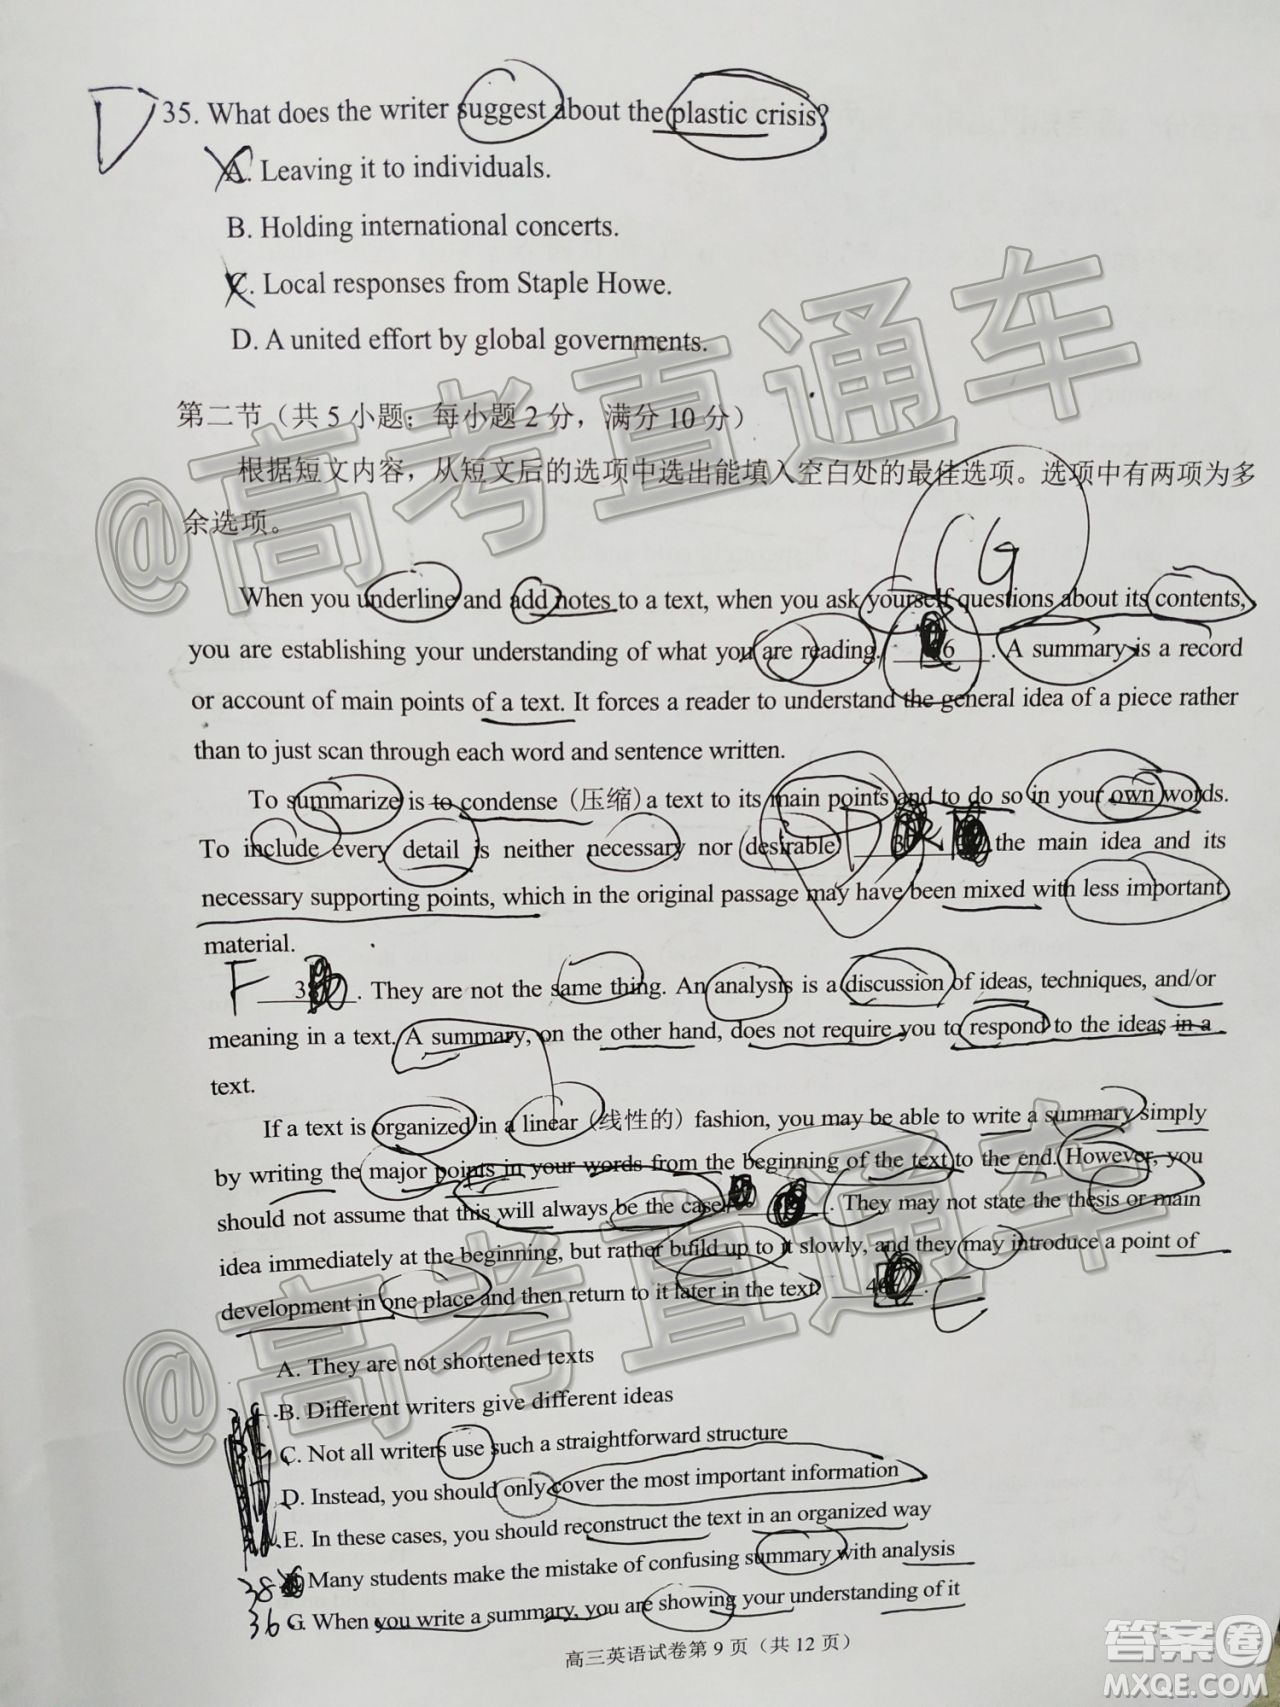 D
35. What does the writer suggest about the plastic crisis?
A. Leaving it to individuals.
B. Holding international concerts.
C. Local responses from Staple Howe.
D. A united effort by global governments.
第二节（共 5 小题；每小题 2 分，满分 10 分）
根据短文内容，从短文后的选项中选出能填入空白处的最佳选项。选项中有两项为多
余选项。
G
When you underline and add notes to a text, when you ask yourself questions about its contents,
you are establishing your understanding of what you are reading. 36 . A summary is a record
or account of main points of a text. It forces a reader to understand the general idea of a piece rather
than to just scan through each word and sentence written.
To summarize is to condense (压缩) a text to its main points and to do so in your own words.
To include every detail is neither necessary nor desirable. D the main idea and its
necessary supporting points, which in the original passage may have been mixed with less important
material.
F 38 . They are not the same thing. An analysis is a discussion of ideas, techniques, and/or
meaning in a text. A summary, on the other hand, does not require you to respond to the ideas in a
text.
If a text is organized in a linear (线性的) fashion, you may be able to write a summary simply
by writing the major points in your words from the beginning of the text to the end. However, you
should not assume that this will always be the case. . They may not state the thesis or main
idea immediately at the beginning, but rather build up to it slowly, and they may introduce a point of
development in one place and then return to it later in the text. . E
A. They are not shortened texts
B. Different writers give different ideas
C. Not all writers use such a straightforward structure
D. Instead, you should only cover the most important information
E. In these cases, you should reconstruct the text in an organized way
38 Many students make the mistake of confusing summary with analysis
36 G. When you write a summary, you are showing your understanding of it
高三英语试卷第 9 页（共 12 页）
@高考直通车
@高考直通车
答案圈
MXQE.COM